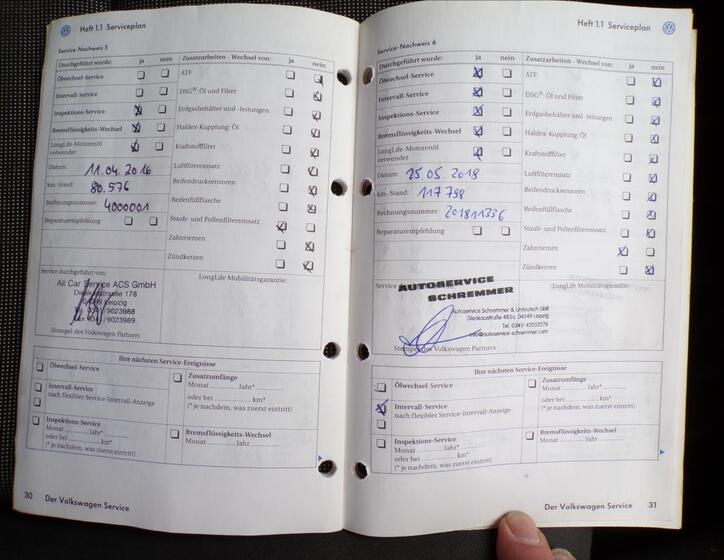 Heft 1.1 Serviceplan
Service-Nachweis 5
Durchgeführt wurde: ja nein
Ölwechsel-Service
Intervall-Service
Inspektions-Service
Bremsflüssigkeits-Wechsel
LongLife-Motorenöl
verwendet
Datum: 11.04.2016
km-Stand: 80.576
Rechnungsnummer: 4000001
Reparaturempfehlung
Zusatzarbeiten - Wechsel von: ja nein
ATF
DSG®: Öl und Filter
Erdgasbehälter und -leitungen
Haldex-Kupplung: Öl
Kraftstofffilter
Luftfiltereinsatz
Reifendrucksensoren
Reifenfüllflasche
Staub- und Pollenfiltereinsatz
Zahnriemen
Zündkerzen
Service durchgeführt von:
All Car Service ACS GmbH
Dieskaustrasse 178
04249 Leipzig
0341/9023988
Fax 0341/9023989
Stempel des Volkswagen Partners
LongLife Mobilitätsgarantie:
Ihre nächsten Service-Ereignisse
Ölwechsel-Service
Intervall-Service
nach flexibler Service-Intervall-Anzeige
Inspektions-Service
Monat Jahr*
oder bei km*
(* je nachdem, was zuerst eintritt)
Zusatzumfänge
Monat Jahr*
oder bei km*
(* je nachdem, was zuerst eintritt)
Bremsflüssigkeits-Wechsel
Monat Jahr
30 Der Volkswagen Service
Heft 1.1 Serviceplan
Service-Nachweis 6
Durchgeführt wurde: ja nein
Ölwechsel-Service
Intervall-Service
Inspektions-Service
Bremsflüssigkeits-Wechsel
LongLife-Motorenöl
verwendet
Datum: 25.05 2018
km-Stand: 117 798
Rechnungsnummer: 201811336
Reparaturempfehlung
Zusatzarbeiten - Wechsel von: ja nein
ATF
DSG®: Öl und Filter
Erdgasbehälter und -leitungen
Haldex-Kupplung: Öl
Kraftstofffilter
Luftfiltereinsatz
Reifendrucksensoren
Reifenfüllflasche
Staub- und Pollenfiltereinsatz
Zahnriemen
Zündkerzen
Service
AUTOSERVICE
SCHREMMER
Autoservice Schremmer & Unteutsch GbR
Dieskaustraße 483a, 04249 Leipzig
Tel. 0341/ 42032276
info@autoservice-schremmer.com
Stempel des Volkswagen Partners
LongLife Mobilitätsgarantie:
Ihre nächsten Service-Ereignisse
Ölwechsel-Service
Intervall-Service
nach flexibler Service-Intervall-Anzeige
Inspektions-Service
Monat Jahr*
oder bei km*
(* je nachdem, was zuerst eintritt)
Zusatzumfänge
Monat Jahr*
oder bei km*
(* je nachdem, was zuerst eintritt)
Bremsflüssigkeits-Wechsel
Monat Jahr
Der Volkswagen Service 31